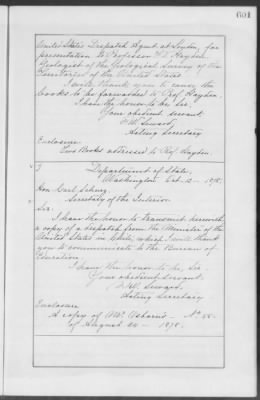 601
United States Despatch Agent at London, for
presentation to Professor F. V. Hayden,
Geologist of the Geological Survey of the
Territories of the United States.
I will thank you to cause the
books to be forwarded to Prof. Hayden.
I have the honor to be, Sir,
Your obedient servant,
F. W. Seward,
Acting Secretary
Enclosure:
Two Books addressed to Prof. Hayden.
Department of State,
Washington Oct. 12 - 1878.
Hon. Carl Schurz,
Secretary of the Interior
Sir:
I have the honor to transmit herewith
a copy of a despatch from the Minister of the
United States in Chile, which I will thank
you to communicate to the Bureau of
Education.
I have the honor to be, Sir
Your obedient servant.
F. W. Seward.
Acting Secretary
Enclosure
A copy of Mr. Osborn's - No 55.
of August 24 - 1878.